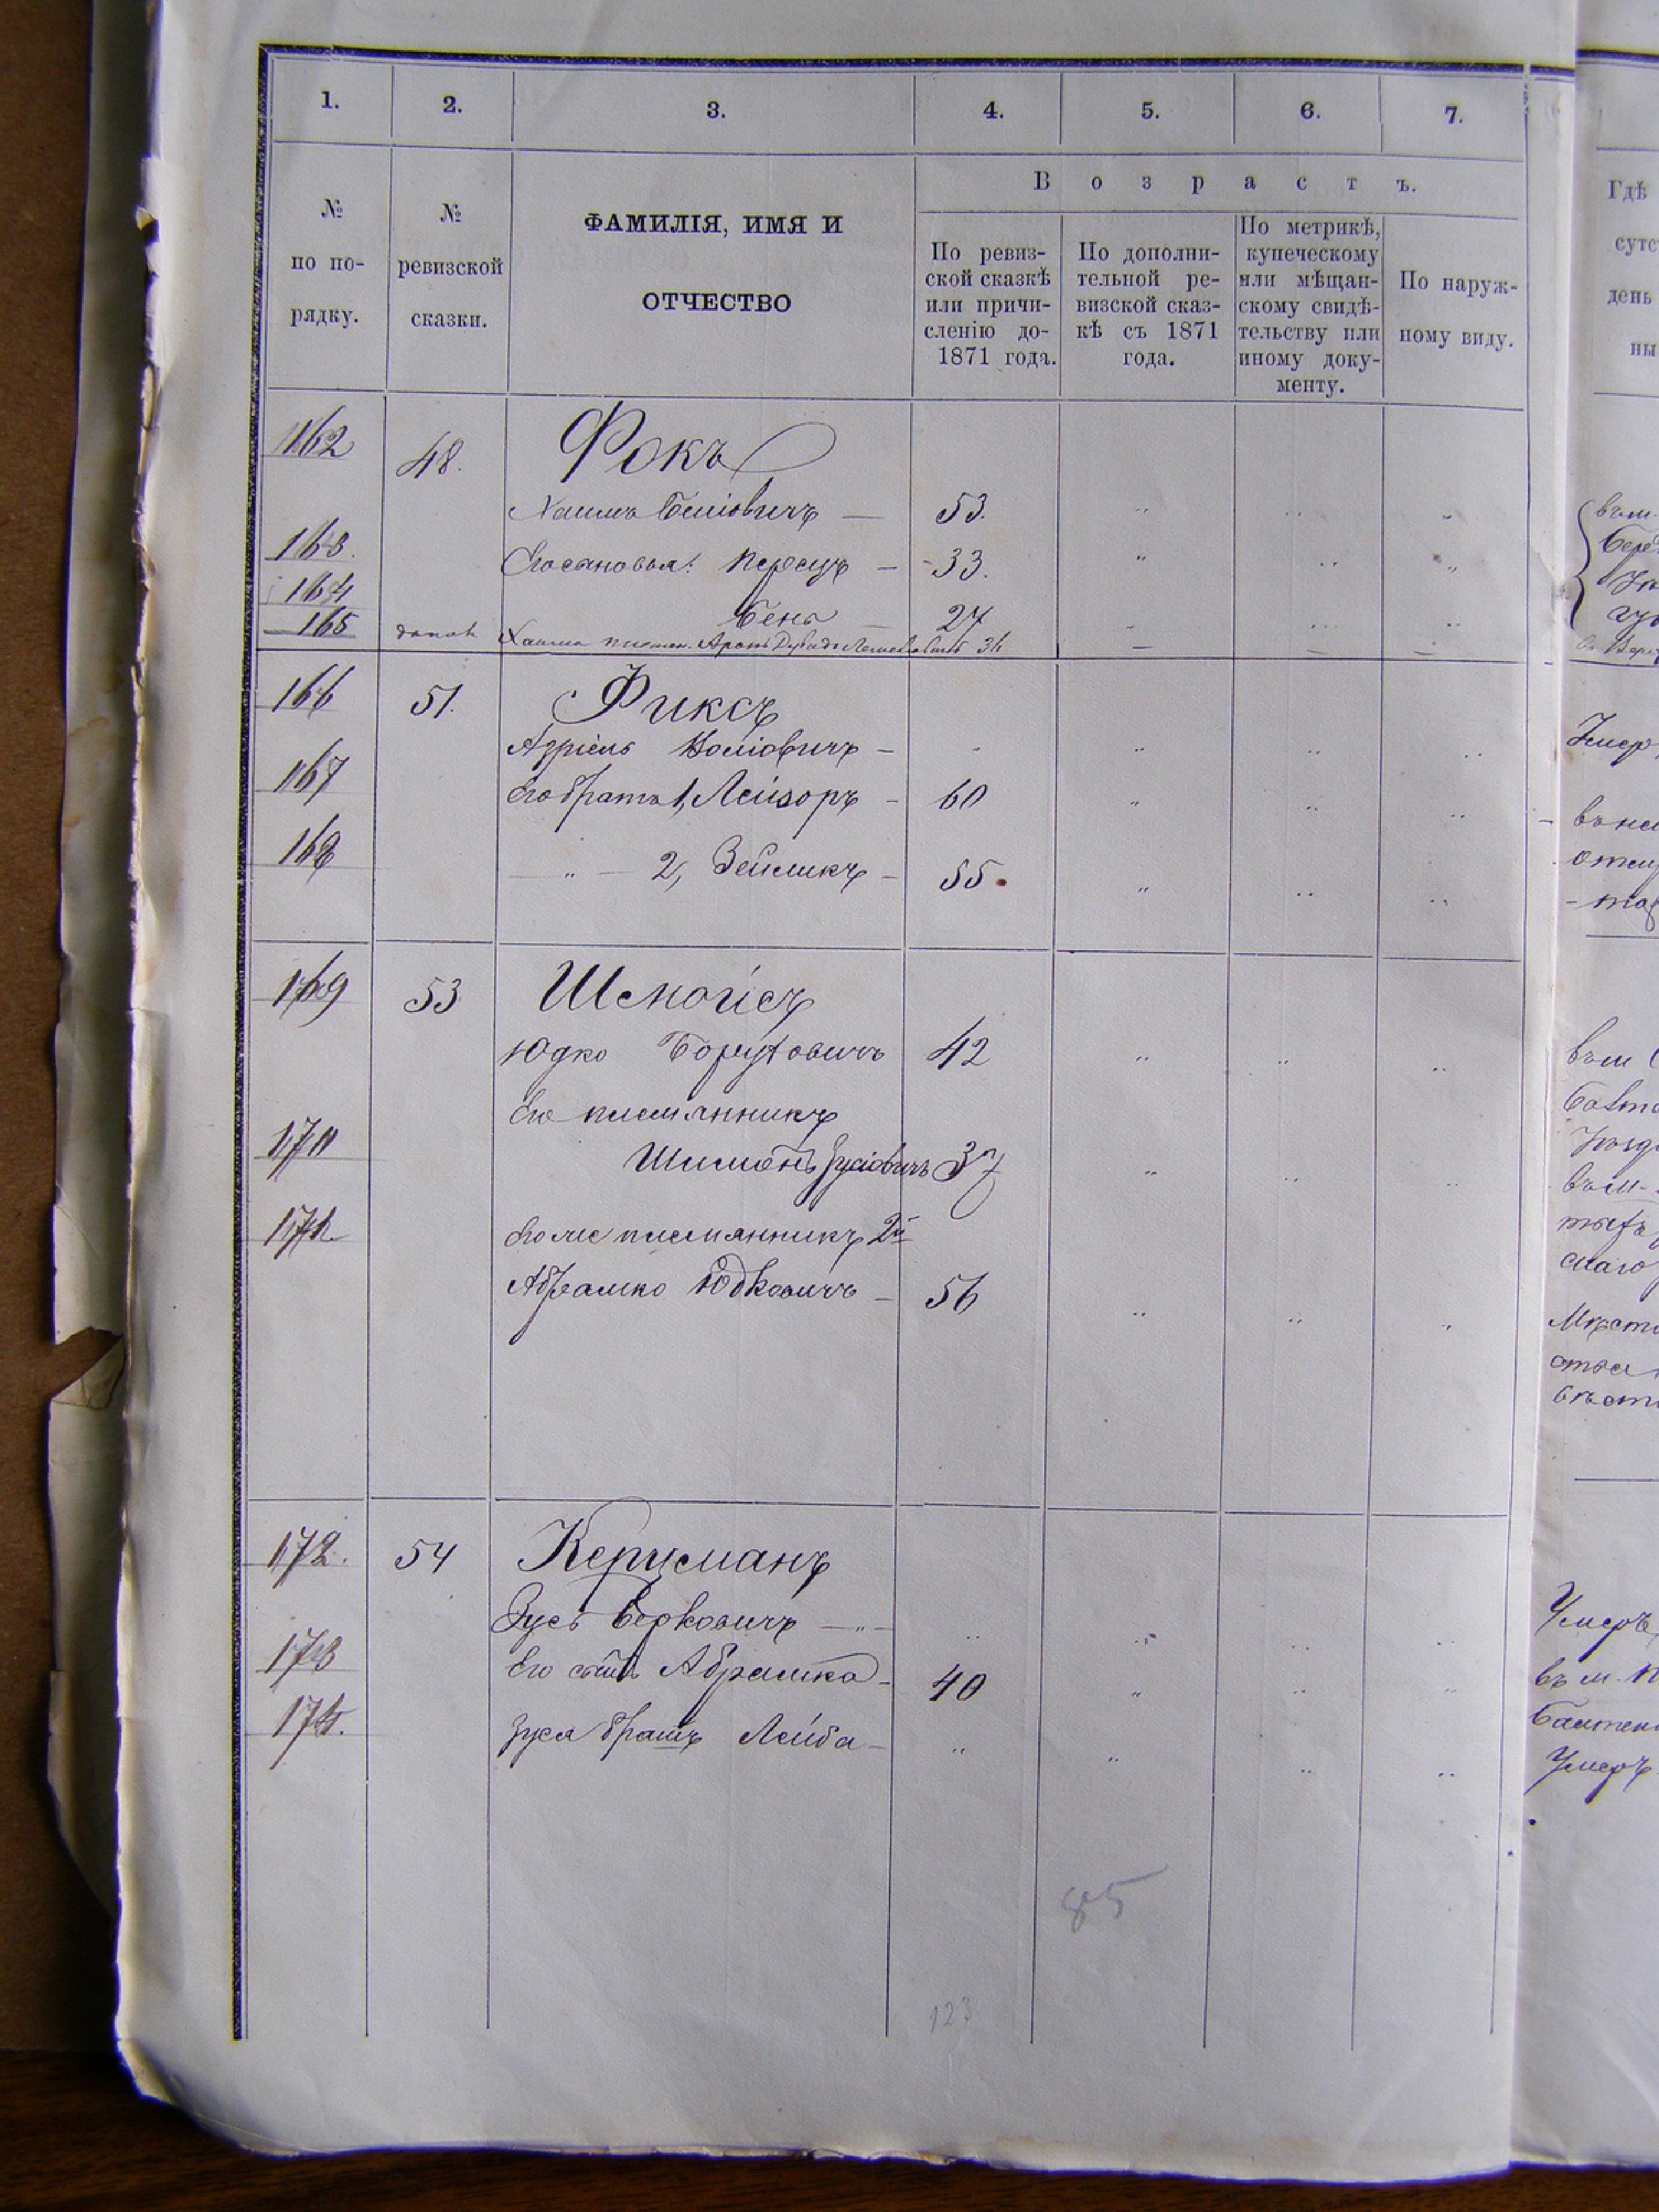 1. 2. 3. 4. 5. 6. 7.
№ по по-рядку.
№ ревизской сказки.
ФАМИЛІЯ, ИМЯ И
ОТЧЕСТВО
Возрастъ.
По ревиз-
ской сказкѣ
или причи-
сленію до-
1871 года.
По дополни-
тельной ре-
визской сказ-
кѣ съ 1871
года.
По метрикѣ,
купеческому
или мѣщан-
скому свидѣ-
тельству или
иному доку-
менту.
По наруж-
ному виду.
Гдѣ
сутс
день
ны
162 48. Фокъ
Хаимъ 53.
163. Его сыновья: Пересъ 33.
164 Бень 27
165 допол Хаима племян. Аронъ Дувидъ 36
166 51. Фиксъ
Азріель
167 Его братъ 1, Лейзоръ 60
168 " 2, Зейликъ 55.
169 53 Шемойсъ
Юдко Боруховичъ 42
Его племянникъ
170 Шимонъ Зусіовичъ 37
171 Его же племянникъ 2й
Абрамко Юдковичъ 56
172. 54 Керцманъ
Зусь Берковичъ
173 Его сынъ Абрамко 40
174. Зуся братъ Лейба
Умеръ
въ м.
Умеръ
85
123